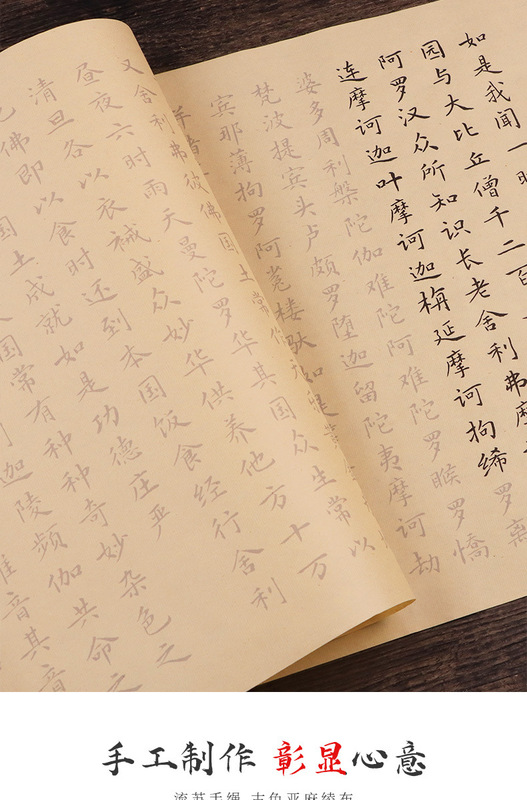 如是我闻一
园与大比丘僧千二百
阿罗汉众所知识长老舍利弗摩
连摩诃迦叶摩诃迦栴延摩诃拘絺罗离
婆多周利槃陀伽难陀阿难陀罗睺罗憍
梵波提宾头卢颇罗堕迦留陀夷摩诃劫
宾那薄拘罗阿㝹楼驮如是
又舍利弗彼佛国土常作
昼夜六时雨天曼陀罗华其国众生常以
清旦各以衣裓盛众妙华供养他方十万
佛即以食时还到本国饭食经行舍利
国土成就如是功德庄严
国常有种种奇妙杂色之
迦陵频伽共命之
音其音
手工制作 彰显心意